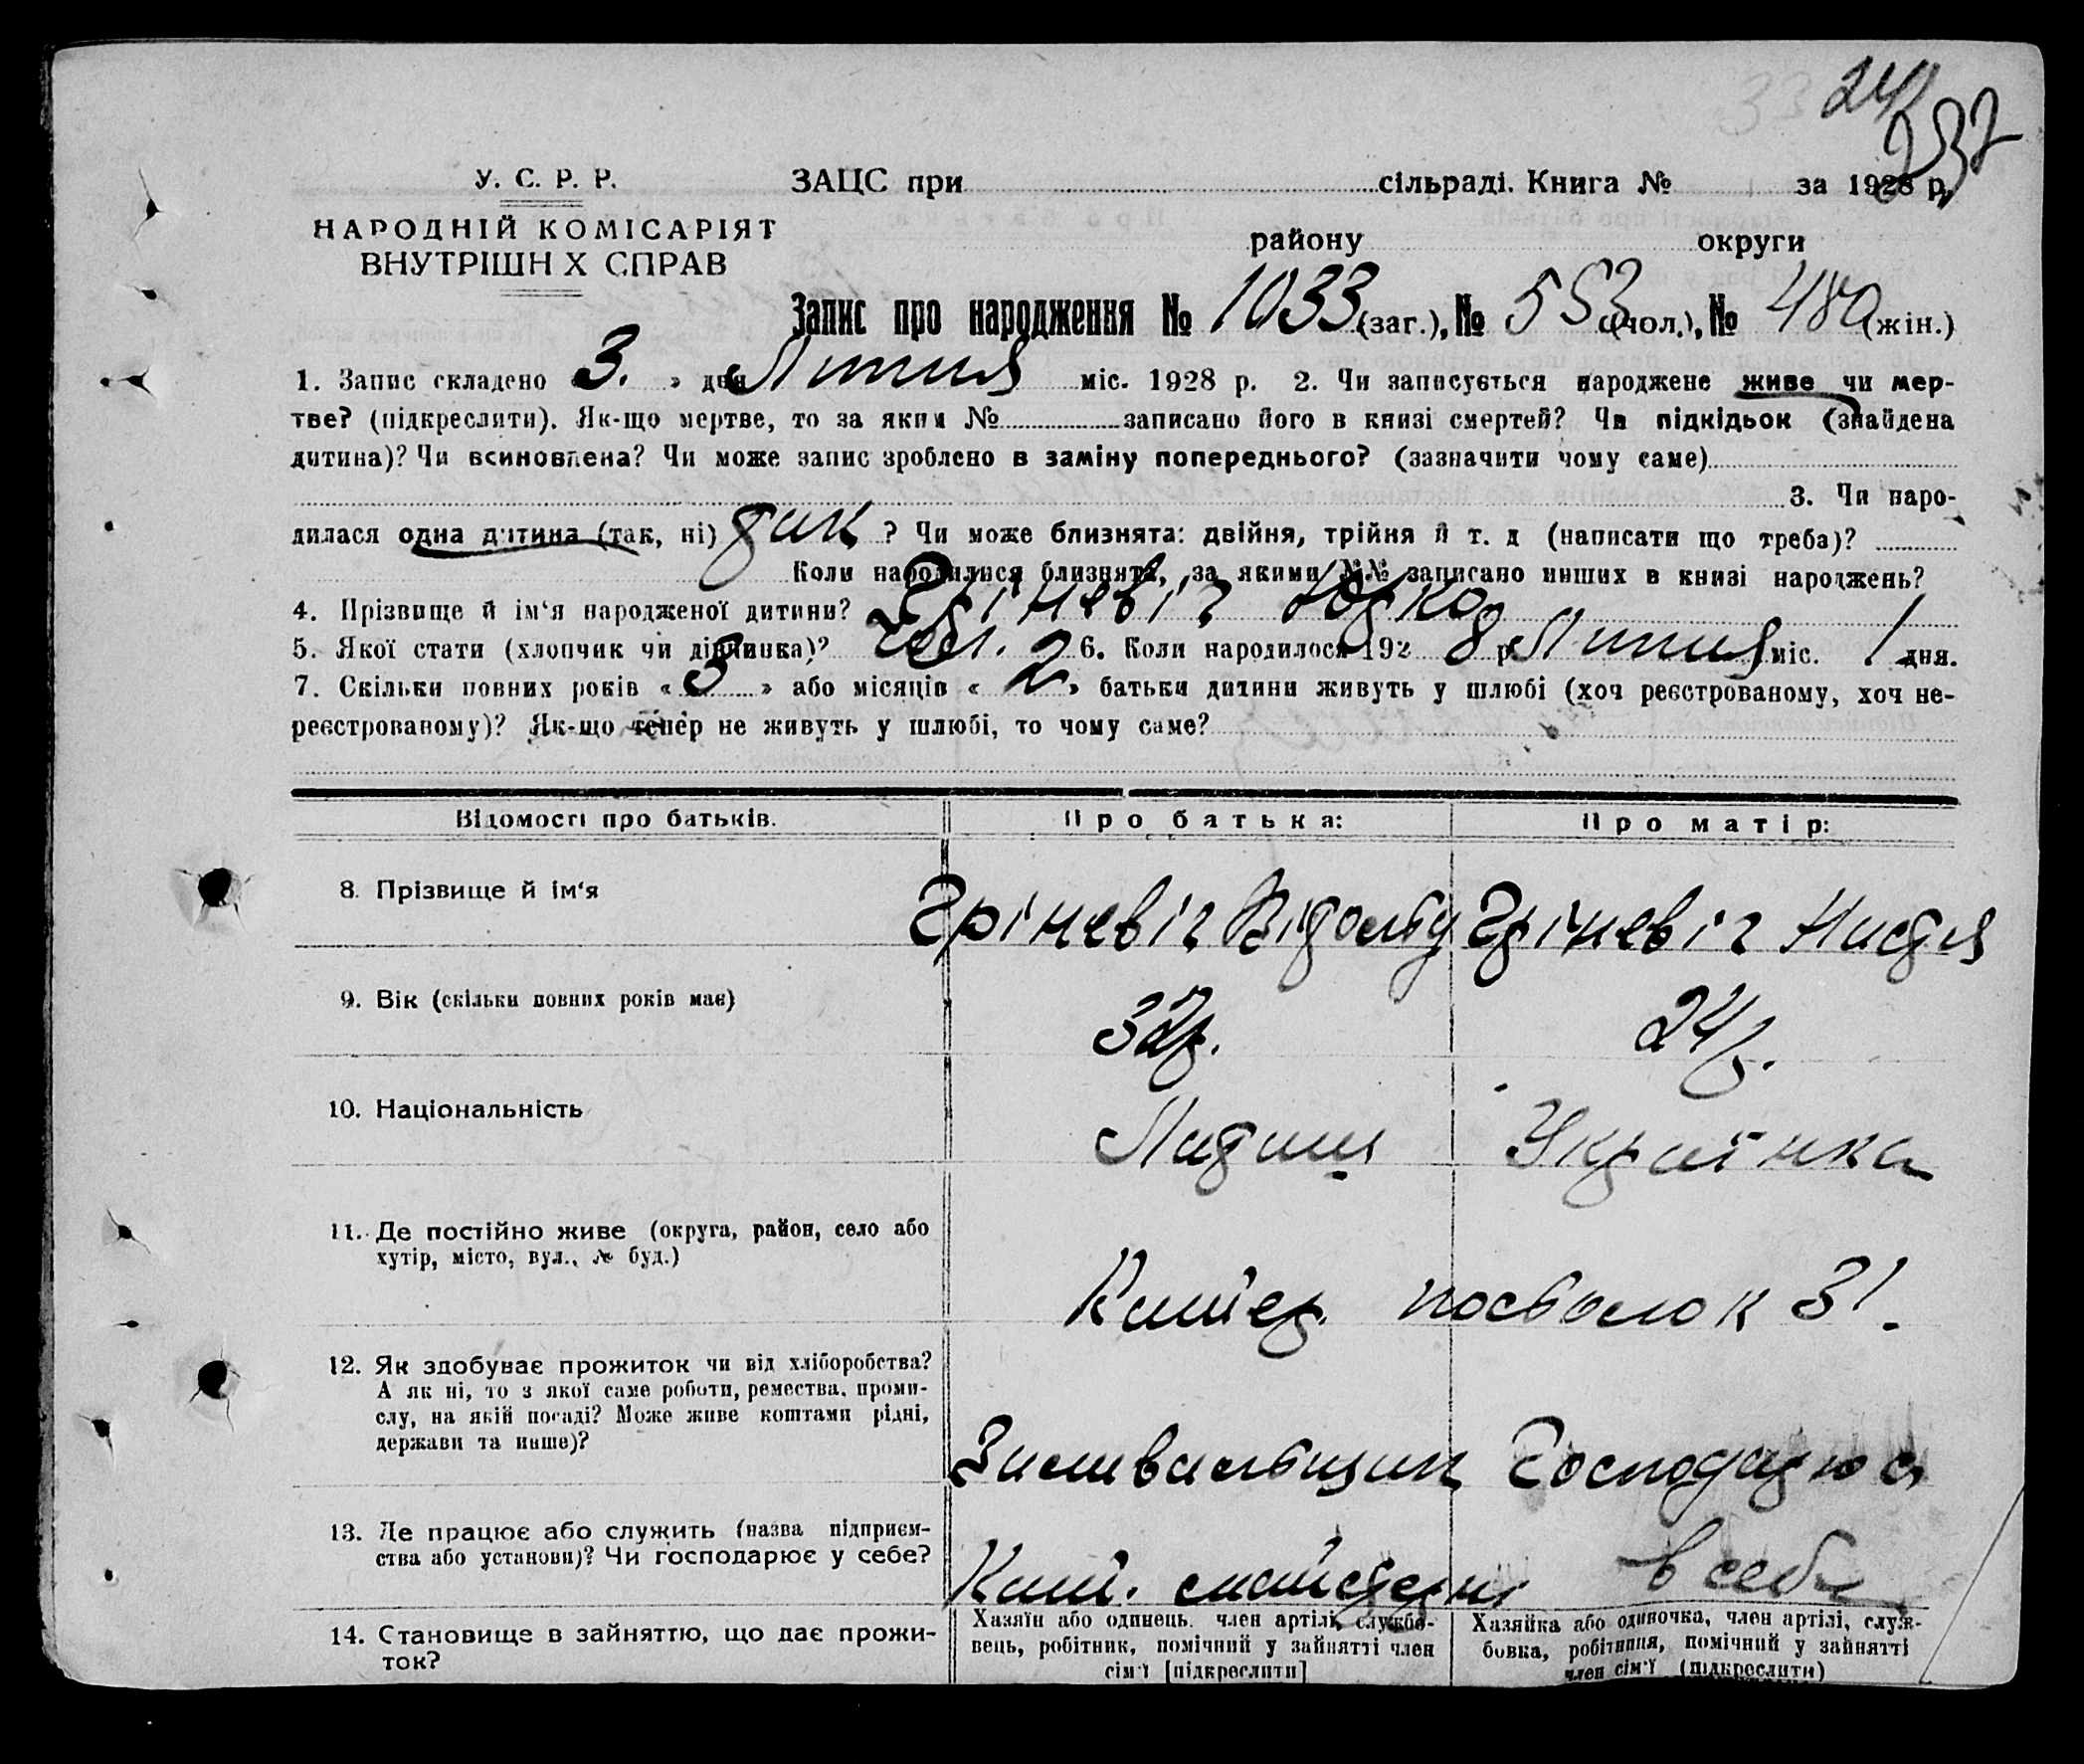 24
237
У. С. Р. Р.
ЗАЦС при сільраді. Книга № за 1928 р.
НАРОДНІЙ КОМІСАРІЯТ
ВНУТРІШН Х СПРАВ
району округи
Запис про народження № 1033 (заг.), № 553 (чол.), № 480 (жін.)
1. Запис складено « 3. » дня Липня міс. 1928 р. 2. Чи записується народжене живе чи мер-
тве? (підкреслити). Як-що мертве, то за яким № записано його в книзі смертей? Чи підкідьок (знайдена
дитина)? Чи всиновлена? Чи може запис зроблено в заміну попереднього? (зазначити чому саме)
3. Чи наро-
дилася одна дитина (так, ні) так ? Чи може близнята: двійня, трійня й т. д (написати що треба)?
Коли народилися близнята, за якими №№ записано инших в книзі народжень?
4. Прізвище й ім‘я народженої дитини? Гріневіч
5. Якої стати (хлопчик чи дівчинка)? 6. Коли народилося 192 8 р Липня міс. 1 дня.
7. Скільки повних років « 3 » або місяців « 2 » батьки дитини живуть у шлюбі (хоч реєстрованому, хоч не-
реєстрованому)? Як-що тепер не живуть у шлюбі, то чому саме?
Відомості про батьків. Про батька: Про матір:
8. Прізвище й ім‘я Гріневіч Вітольд Гріневіч Надя
9. Вік (скільки повних років має) 32р. 24р.
10. Національність Українка
11. Де постійно живе (округа, район, село або
хутір, місто, вул., № буд.)
посьолок 31.
12. Як здобуває прожиток чи від хліборобства?
А як ні, то з якої саме роботи, ремества, проми-
слу, на якій посаді? Може живе коштами рідні,
держави та инше)?
Заливальщик Господарює
13. Де працює або служить (назва підприєм-
ства або установи)? Чи господарює у себе?
в себе
14. Становище в зайняттю, що дає прожи-
ток?
Хазяїн або одинець, член артілі, службо-
вець, робітник, помічний у зайнятті член
сім‘ї [підкреслити]
Хазяйка або одиночка, член артілі, служ-
бовка, робітниця, помічний у зайнятті
член сім‘ї (підкреслити)